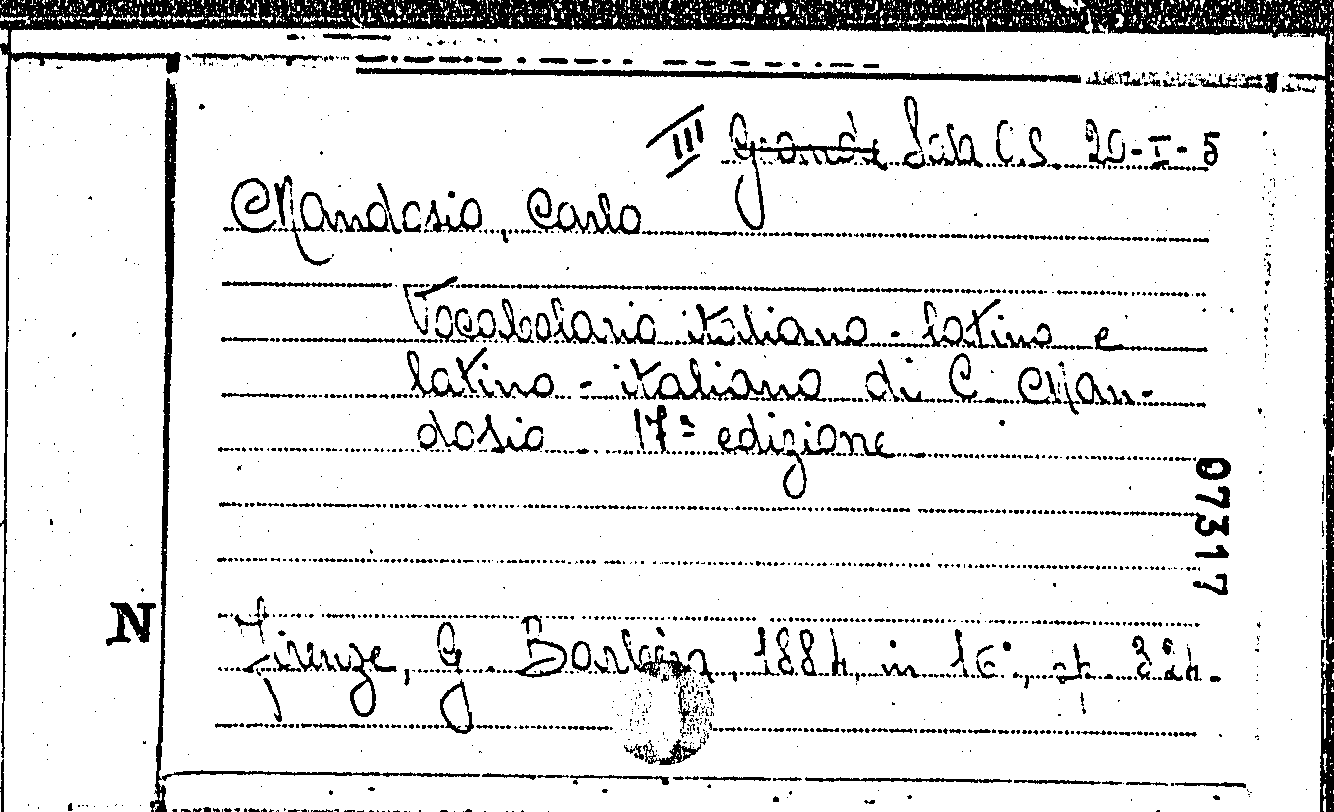 III Grande Sala C.S. 20-I-5
Mandosio, Carlo
Vocabolario italiano-latino e
latino-italiano di C. Man-
dosio. 17ª edizione
07317
N
Firenze, G. Barbèra, 1884, in 16°, p. 824.